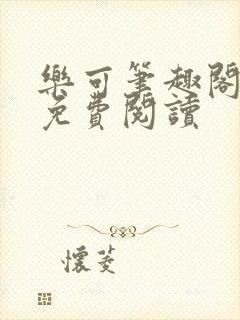 樂可筆趣閣
免費閱讀
懷菱